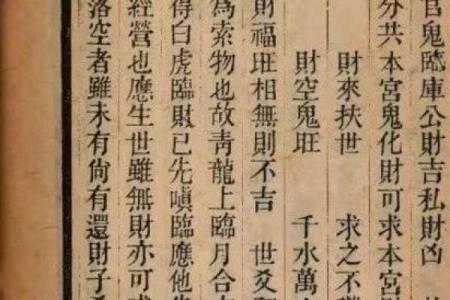 官鬼臨庫公財吉私財凶
分共本宮鬼化財可求本宮
財來扶世 求之不
財空鬼旺 千水萬
財福旺相無則不吉 世爻
為索物也故青龍上臨月合
得白虎臨財已先嗔臨應他
經營也應生世雖無財亦可
落空者雖未有尚有還財子